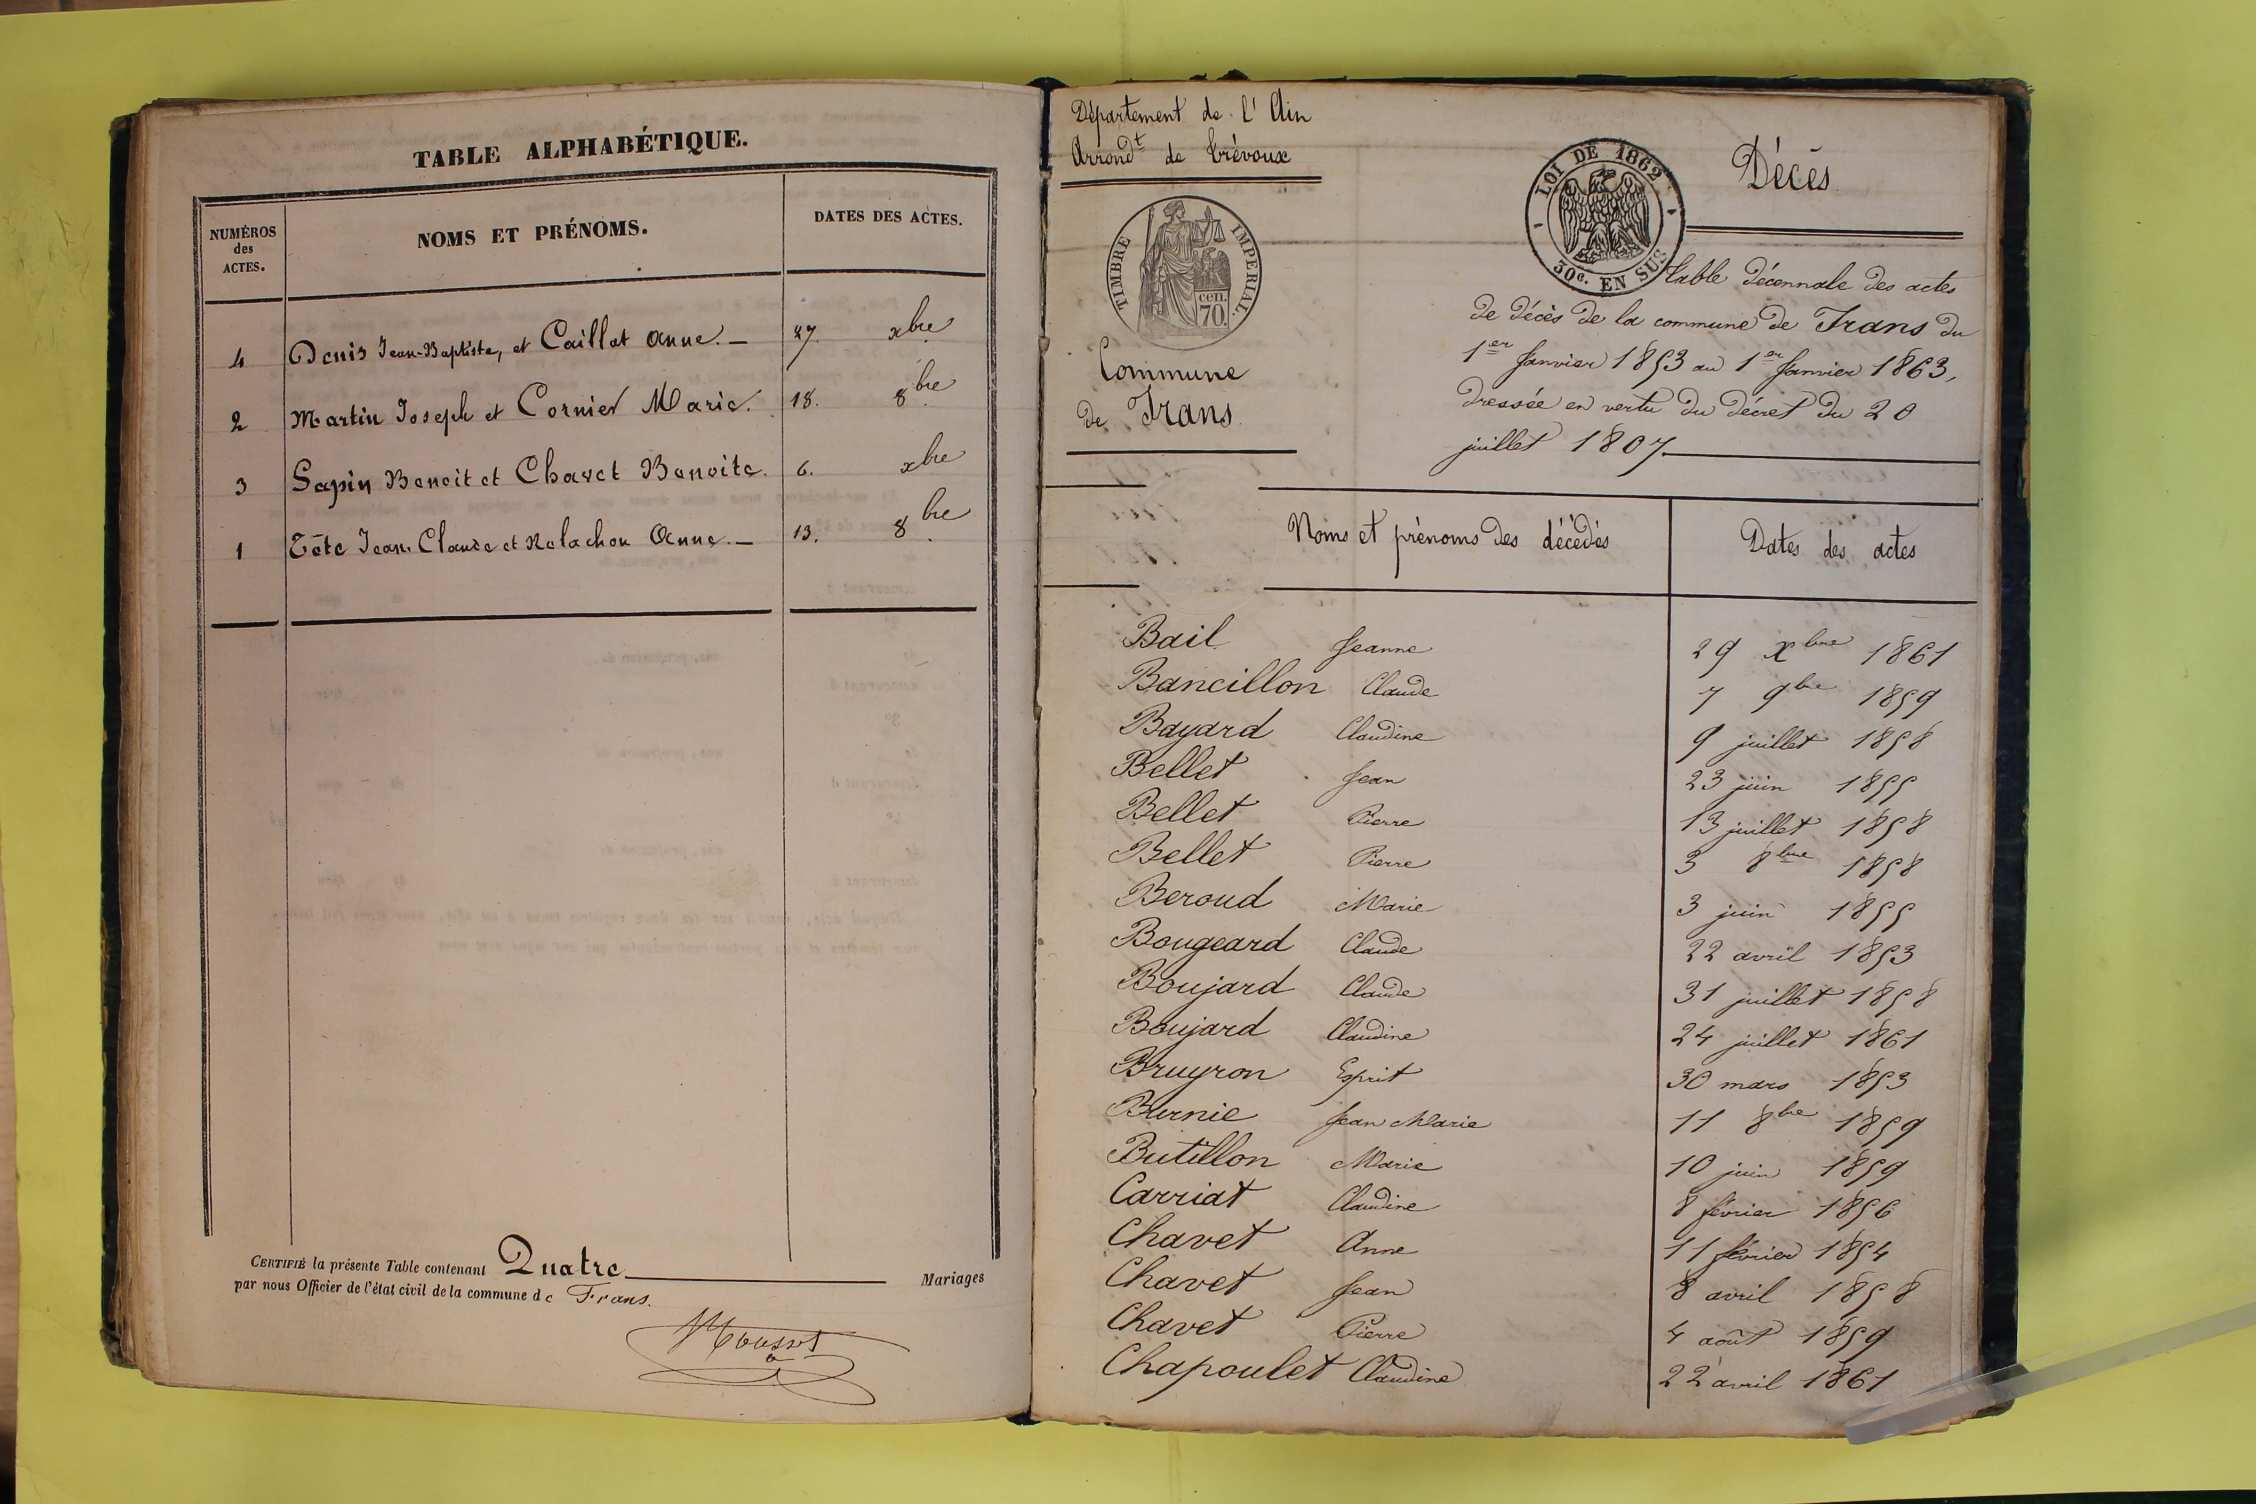 TABLE ALPHABÉTIQUE.
NUMÉROS
des
ACTES.
NOMS ET PRÉNOMS.
DATES DES ACTES.
4 Denis Jean-Baptiste, et Caillat Anne. — 27. xbre
2 Martin Joseph et Cornier Marie. 18. 8bre
3 Sapin Benoit et Chavet Benoite. 6. xbre
1 Tête Jean-Claude et Relachon Anne. — 13. 8bre
CERTIFIÉ la présente Table contenant Quatre Mariages
par nous Officier de l'état civil de la commune de Frans.
Département de l'Ain
Arrondt de Trévoux
TIMBRE IMPERIAL.
cen.
70.
Commune
de Frans
LOI DE 1862
30c. EN SUS
Décès
Table décennale des actes
de décès de la commune de Frans du
1er Janvier 1853 au 1er Janvier 1863,
dressée en vertu du décret du 20
juillet 1807
Noms et prénoms des décédés Dates des actes
Bail Jeanne 29 Xbre 1861
Bancillon Claude 7 9bre 1859
Bayard Claudine 9 juillet 1858
Bellet Jean 23 juin 1855
Bellet Pierre 13 juillet 1858
Bellet Pierre 3 8bre 1858
Beroud Marie 3 juin 1855
Bougeard Claude 22 avril 1853
Boujard Claude 31 juillet 1858
Boujard Claudine 24 juillet 1861
Bruyron Esprit 30 mars 1853
Burnie Jean Marie 11 8bre 1859
Butillon Marie 10 juin 1859
Carriat Claudine 8 février 1856
Chavet Anne 11 février 1854
Chavet Jean 8 avril 1858
Chavet Pierre 4 août 1859
Chapoulet Claudine 22 avril 1861